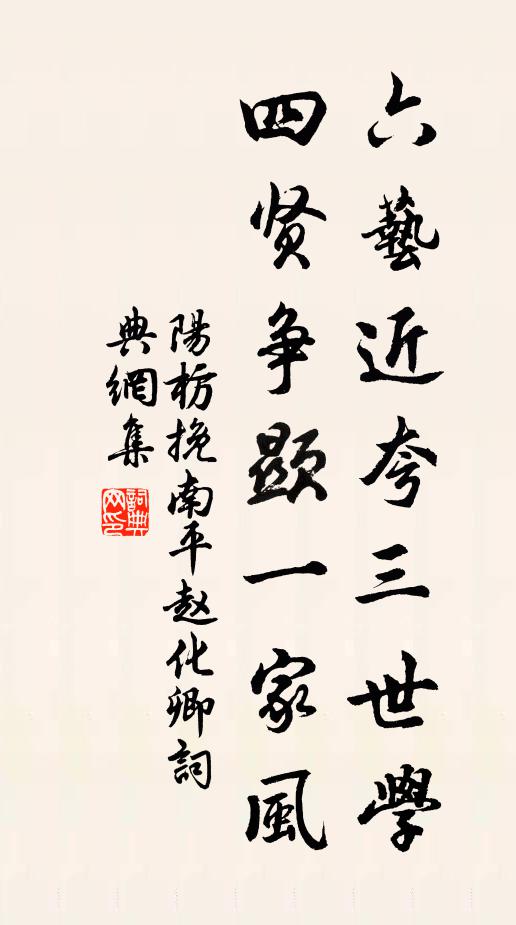 六藝近夸三世學
四贤争顯一家風
陽枋挽南平赵化卿詞
典網集
詞典網印